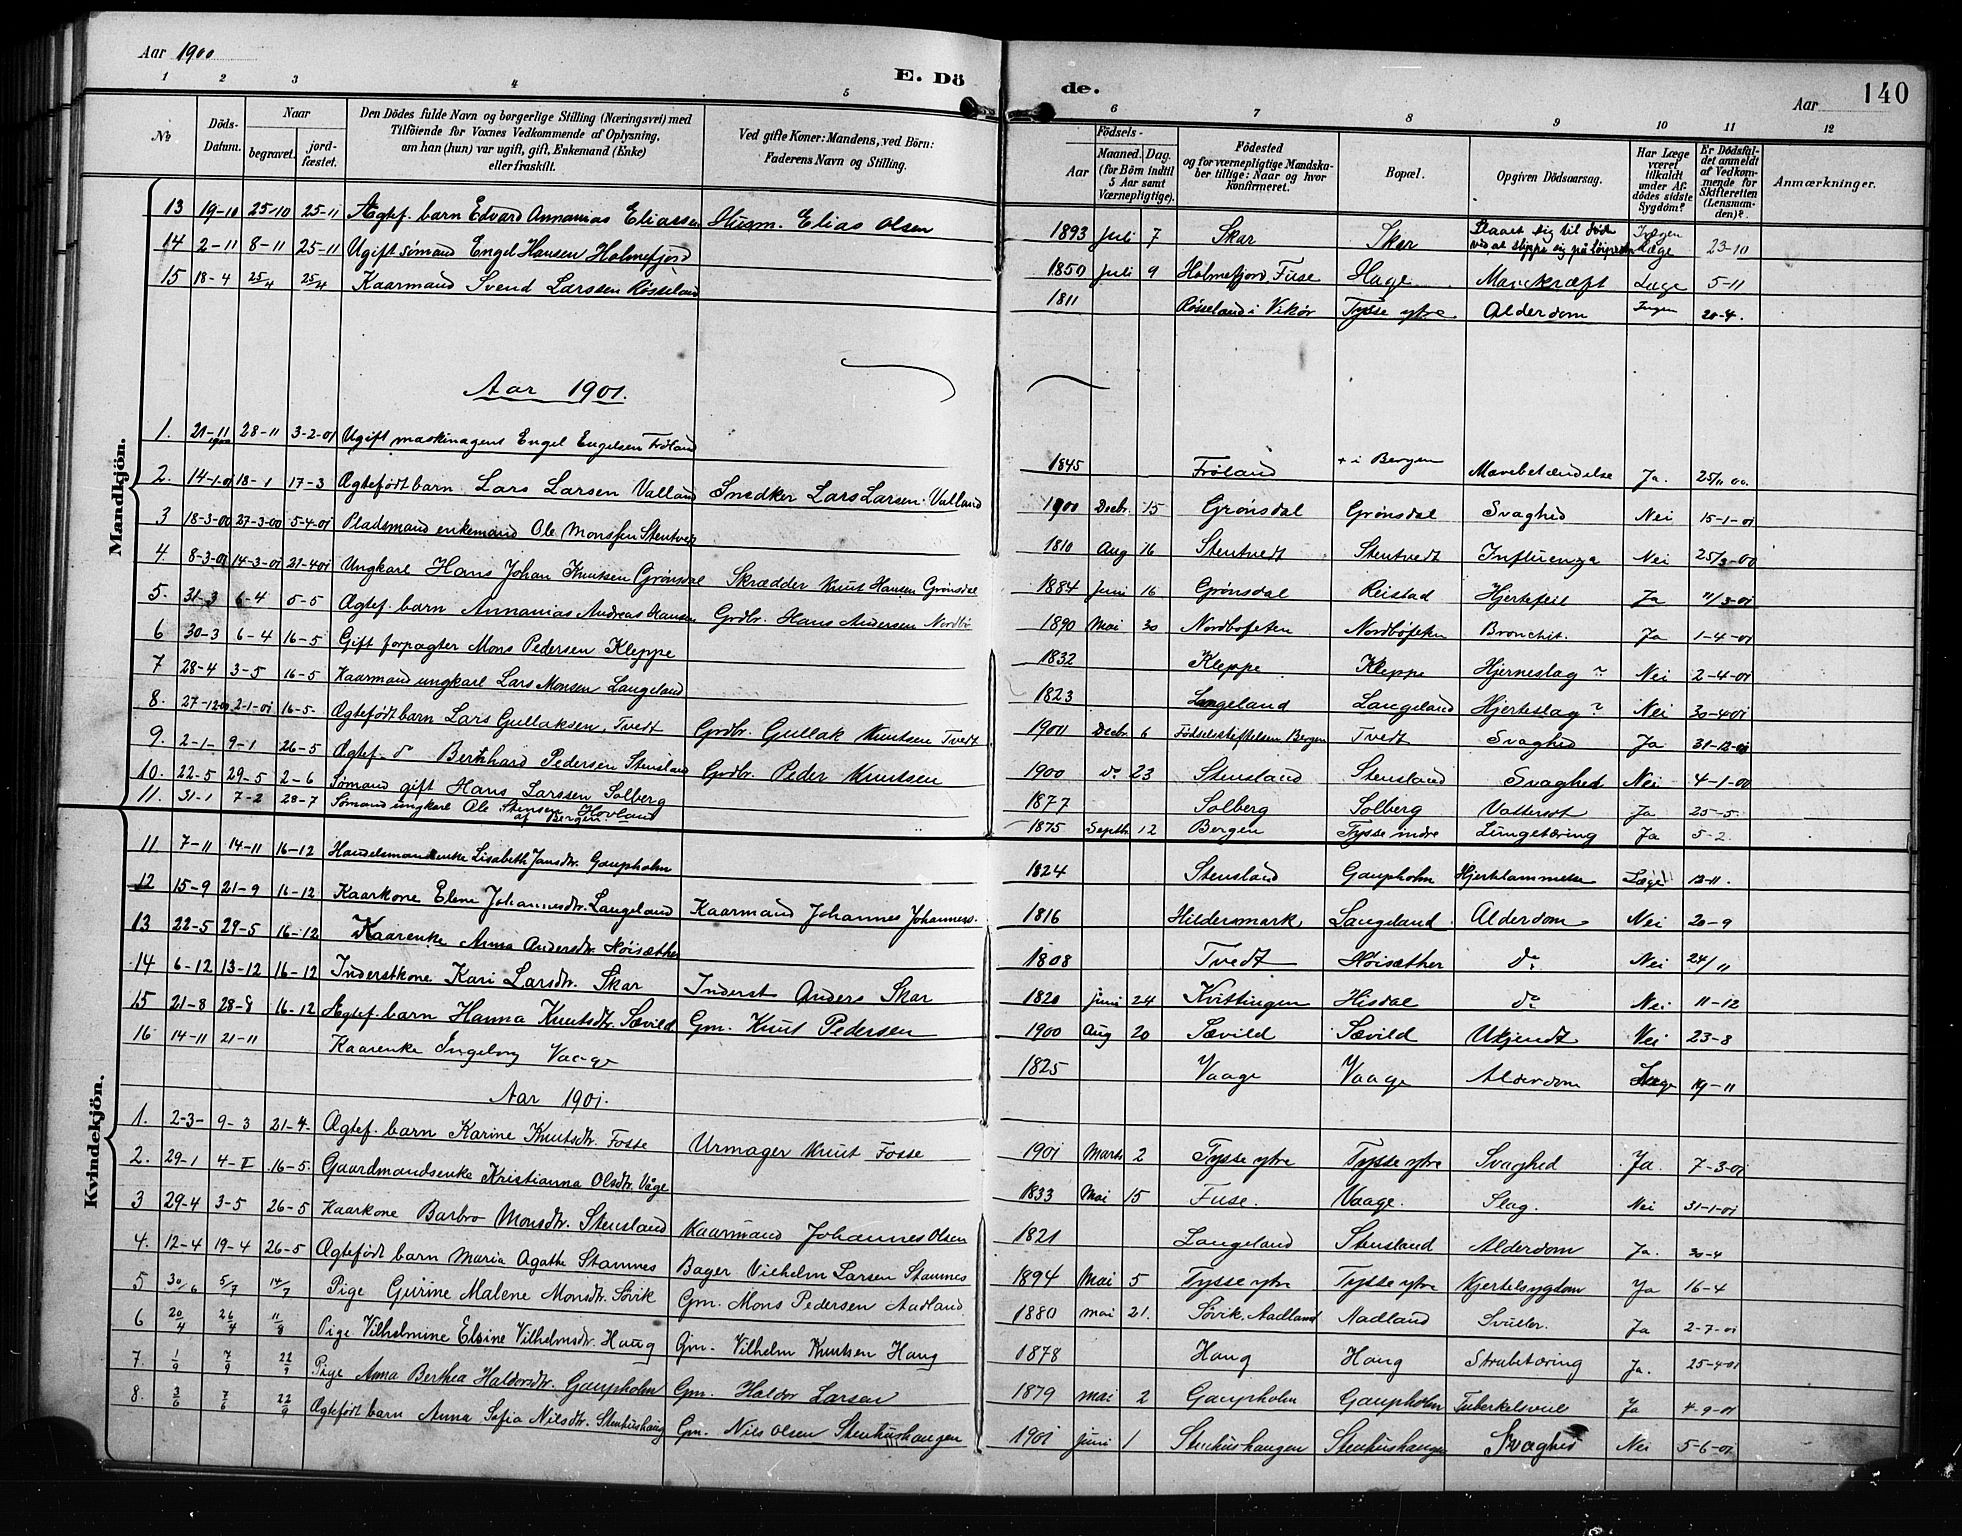 Aar 1900
E. Dö de.
Aar 140
1 2 3 4 5 6 7 8 9 10 11 12
No
Döds-Datum.
Naar
begravet.
jord-fæstet.
Den Dödes fulde Navn og borgerlige Stilling (Næringsvei) med
Tilföiende for Voxnes Vedkommende af Oplysning,
om han (hun) var ugift, gift, Enkemand (Enke)
eller fraskilt.
Ved gifte Koner: Mandens, ved Börn:
Faderens Navn og Stilling.
Födsels-
Aar
Maaned. Dag.
(for Börn indtil
5 Aar samt
Værnepligtige).
Födested
og for værnepligtige Mandska-
ber tillige: Naar og hvor
konfirmeret.
Bopæl.
Opgiven Dödsaarsag.
Har Læge
været
tilkaldt
under Af-
dödes sidste
Sygdom?
Er Dödsfal-
det anmeldt
af Vedkom-
mende for
Skifteretten
(Lensman-
den)?
Anmærkninger.
Mandkjön.
13 19-10 25-10 25-11 Ægtef. barn Edvard Annanias Eliassen Husm. Elias Olsen 1893 Juli 7 Skar Skar Slaaet sig til døde ved at slippe sig på Ingen Læge 23-10
14 2-11 8-11 25-11 Ugift sömand Engel Hansen Holmefjord 1850 Juli 9 Holmefjord, Fuse Hage Mavekræft Læge 5-11
15 18-4 25/4 25/4 Kaarmand Svend Larssen Røsseland 1811 Røsseland i Vikør Tysse ytre Alderdom Ingen 20-4.
Aar 1901.
1. 21-11 1900 28-11 3-2-01 Ugift maskinagent Engel Engelsen Frøland 1845 Frøland + i Bergen Mavebetændelse Ja. 25/11 00.
2. 14-1-01 18-1 17-3 Ægtefødt barn Lars Larsen Valland Snedker Lars Larsen Valland 1900 Decbr. 15 Grønsdal Grønsdal Svaghed Nei 15-1-01
3 18-3-00 27-3-00 5-4-01 Pladsmand enkemand Ole Monssen Stentvedt 1810 Aug 16 Stentvedt Stentvedt Influenza Nei 25/3-00
4. 8-3-01 14-3-01 21-4-01 Ungkarl Hans Johan Knutsen Grønsdal Skrædder Knut Hansen Grønsdal 1884 Juni 16 Grønsdal Reistad Hjertefeil Ja 11/3-01
5. 31-3 6-4 5-5 Ægtef. barn Annanias Andreas Hansen Grdbr. Hans Andersen Nordbø 1890 Mai 30 Nordbøfeten Nordbøfeten Bronchit. Ja 1-4-01
6 30-3 6-4 16-5 Gift forpagter Mons Pedersen Kleppe 1832 Kleppe Kleppe Hjerneslag? Nei 2-4-01
7 28-4 3-5 16-5 Kaarmand ungkarl Lars Monsen Langeland 1823 Langeland Langeland Hjerteslag? Nei 30-4-01
8. 27-12-00 2-1-01 16-5. Ægtefødt barn Lars Gullaksen Tvedt Grdbr. Gullak Knutsen Tvedt 1900 Decbr 6 Fødselsstiftelsen Bergen Tvedt Svaghed Ja 31-12-00
9. 2-1- 9-1 26-5 Ægtef. do Bernhard Pedersen Stensland Grdbr. Peder Knutsen 1900 do 23 Stensland Stensland Svaghed Nei 4-1-00
10. 22-5 29-5 2-6 Sømand gift Hans Larssen Solberg 1877 Solberg Solberg Vattersot Ja 25-5.
11. 31-1 7-2 28-7 Sømand ungkarl Ole Stensen Hovland af Bergen 1875 Septb. 12 Bergen Tysse indre Lungetæring Ja 5-2.
Kvindekjön.
11 7-11 14-11 16-12 Handelsmandsenke Lisabeth Jansdtr. Gaupholm 1824 Stensland Gaupholm Hjertelammelse Læge 12-11.
12 15-9 21-9 16-12 Kaarkone Eleni Johannesdtr. Langeland Kaarmand Johannes Johanness. 1816 Hildersmark. Langeland Alderdom Nei 20-9
13 22-5 29-5 16-12 Kaarenke Anna Andersdtr. Høisæther 1808 Tvedt Høisæther do. Nei 24/11
14 6-12 13-12 16-12 Inderstkone Kari Larsdtr. Skar Inderst Anders Skar 1820 juni 24 Kvittingen Hisdal do Nei 11-12
15 21-8 28-8 16-12 Ægtef. barn Hanna Knutsdtr. Sævild Gm. Knut Pedersen 1900 Aug 20 Sævild Sævild Ukjendt Nei 23-8
16 14-11 21-11 Kaarenke Ingeborg Vaage 1825 Vaage Vaage Alderdom Læge 19-11
Aar 1901.
1. 2-3- 9-3 21-4. Ægtef. barn Karine Knutsdtr. Fosse Urmager Knut Fosse 1901 Marts 2 Tysse ytre Tysse ytre Svaghed Ja. 7-3-01
2. 29-1 4-II 16-5. Gaardmandsenke Kristianna Olsdtr. Våge 1833 Mai 15 Fuse. Vaage. Slag. Nei 31-1-01
3 29-4 3-5 26-5 Kaarkone Barbro Monsdtr. Stensland Kaarmand Johannes Olsen 1821 Langeland Stensland Alderdom Ja. 30-4
4. 12-4 19-4 26-5 Ægtefødt barn Maria Agathe Stamnes Bager Vilhelm Larsen Stamnes 1894 Mai 5 Tysse ytre Tysse ytre Kjertelsygdom Ja 16-4
5 30/6 5/7 14/7 Pige Gurine Malene Monsdtr. Søvik Gm. Mons Pedersen Aadland. 1880 mai 21. Søvik, Aadland Aadland Svulst. Ja 2-7-01
6 20/4 26/4 11/8 Pige Vilhelmine Elsine Vilhelmsdtr. Haug Gm. Vilhelm Knutsen Haug 1878 Haug Haug Strubetæring Ja. 25-4-01
7. 1/9 7/9 22/9 Pige Anna Berthea Haldorsdtr. Gaupholm Gm. Haldor Larsen 1879 mai 2 Gaupholm Gaupholm Tuberkelvul Ja 4-9-01
8. 3/6 7/6 22/9 Ægtefødt barn Anna Sofia Nilsdtr. Stenhushaug Gm. Nils Olsen Stenhushaugen 1901 Juni 1 Stenhushaugen Stenhushaugen Svaghed Nei 5-6-01